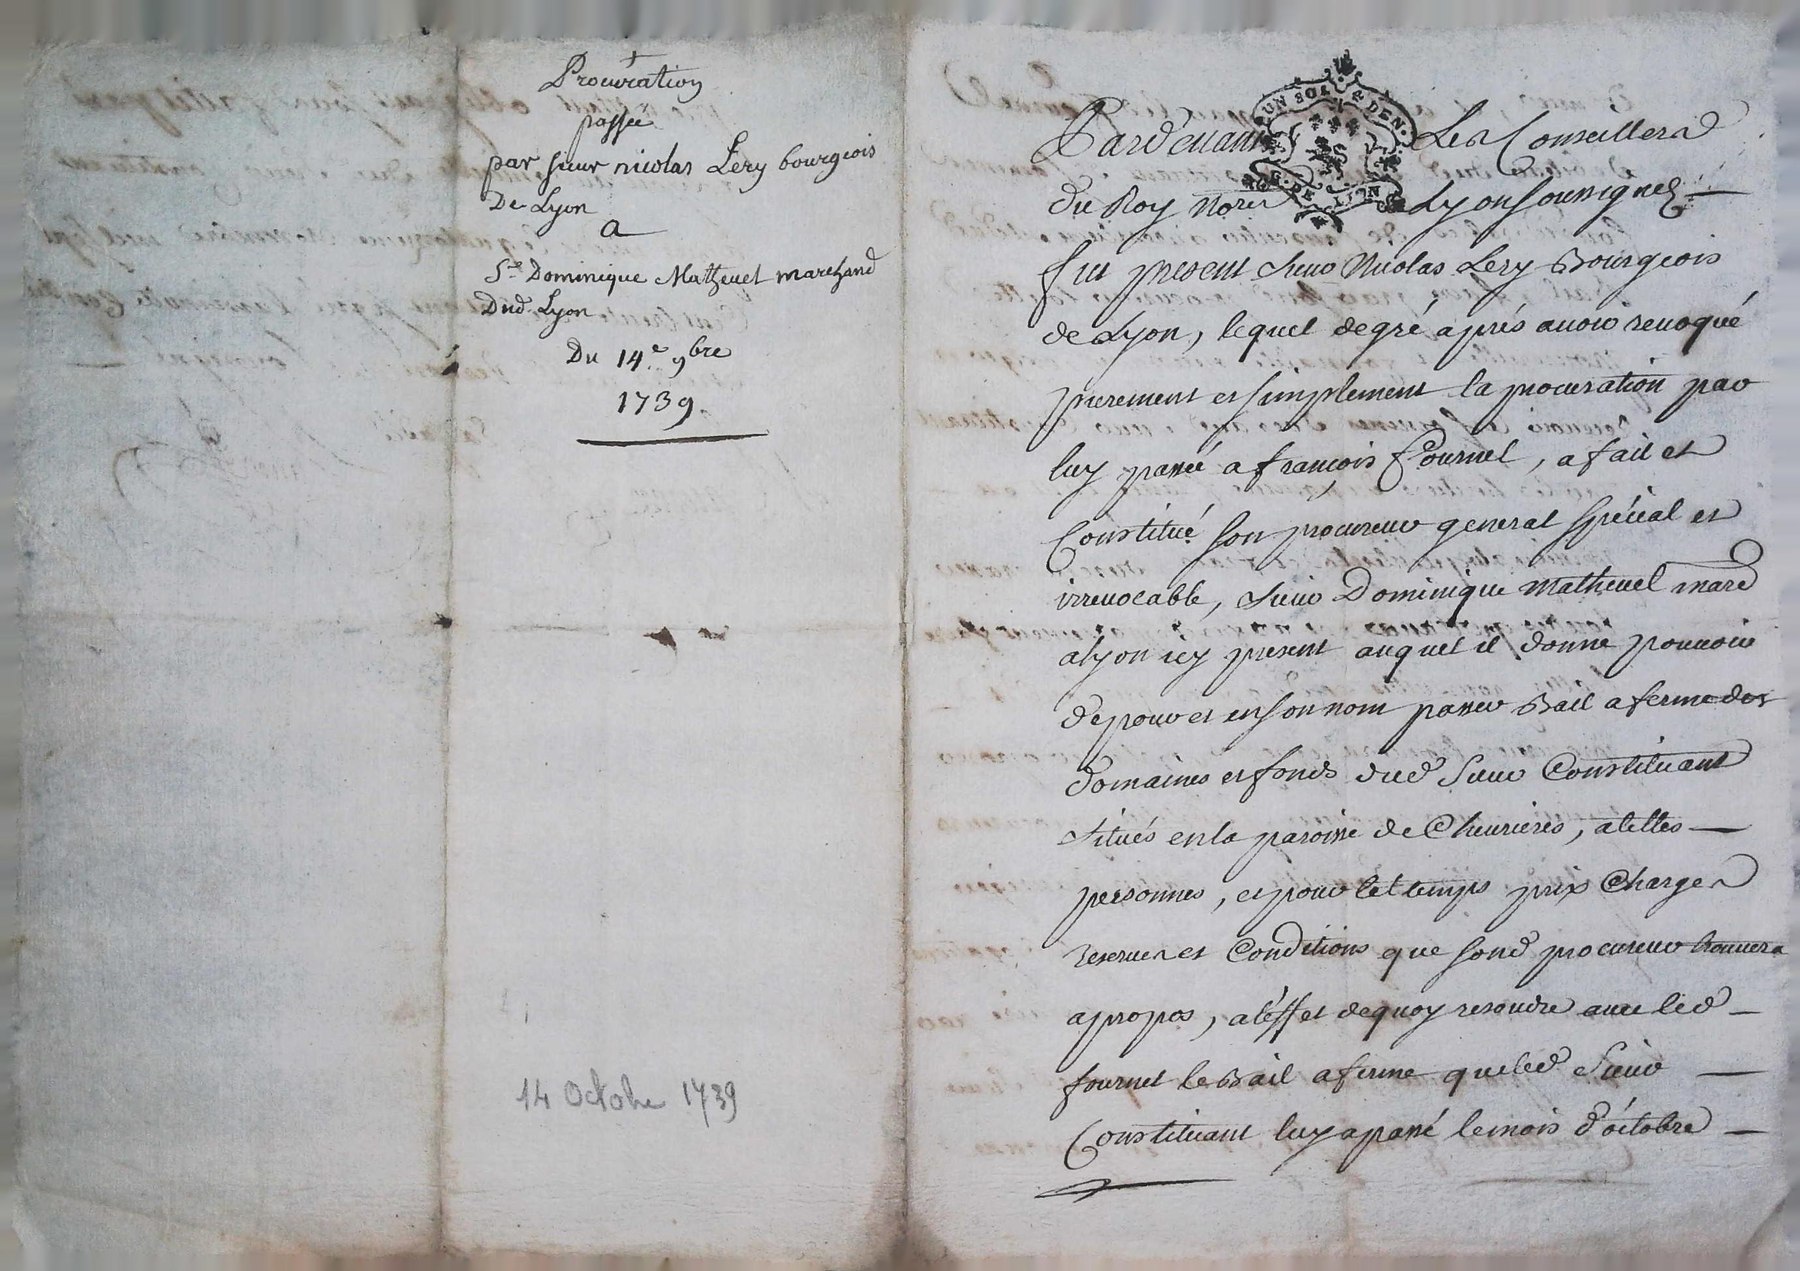 Procuration
passée
par sieur nicolas Lery bourgeois
De Lyon
a
Sr Dominique Matheuet marchand
Dud. Lyon
Du 14e 9bre
1739
14 Octobre 1739
UN SOL DEN.
G. DE LION
Pardeuant Les Conseillers
du Roy Nores Lyon soussignez
fut present sieur Nicolas Lery Bourgeois
de Lyon, lequel de gré aprés auoir reuoqué
purement et simplement la procuration par
luy passée a françois fournel, a fait et
Constitué son procureur general spécial et
irreuocable, sieur Dominique Matheuel mard
a Lyon icy present auquel il donne pouuoir
de pour et en son nom passer Bail a ferme des
domaines et fonds dud sieur Constituant
situés en la paroisse de Cheurieres, a telles
personnes, et pour tel temps prix Charges
reserues et Conditions que sond procureur trouuera
apropos, a l'éffet dequoy resoudre auec led
fournel le Bail a ferme que led sieur
Constituant luy a passé le mois d'octobre